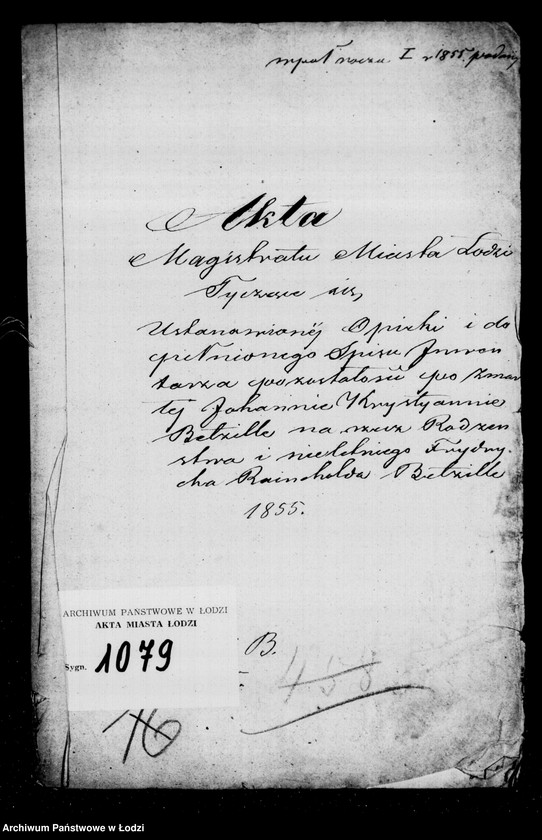 I 1855
Akta
Magistratu Miasta Łodzi
Tyczące się
Ustanowionéj Opieki i do
pełnionego Spisu Inwen
tarza pozostałości po zmar
łéj Johannie Krystyannie
Betzille na rzecz Rodzeń
stwa i nieletniego Frydry
cha Rainholda Betzille
1855.
ARCHIWUM PAŃSTWOWE W ŁODZI
AKTA MIASTA ŁODZI
Sygn. 1079
B.
458
76
Archiwum Państwowe w Łodzi